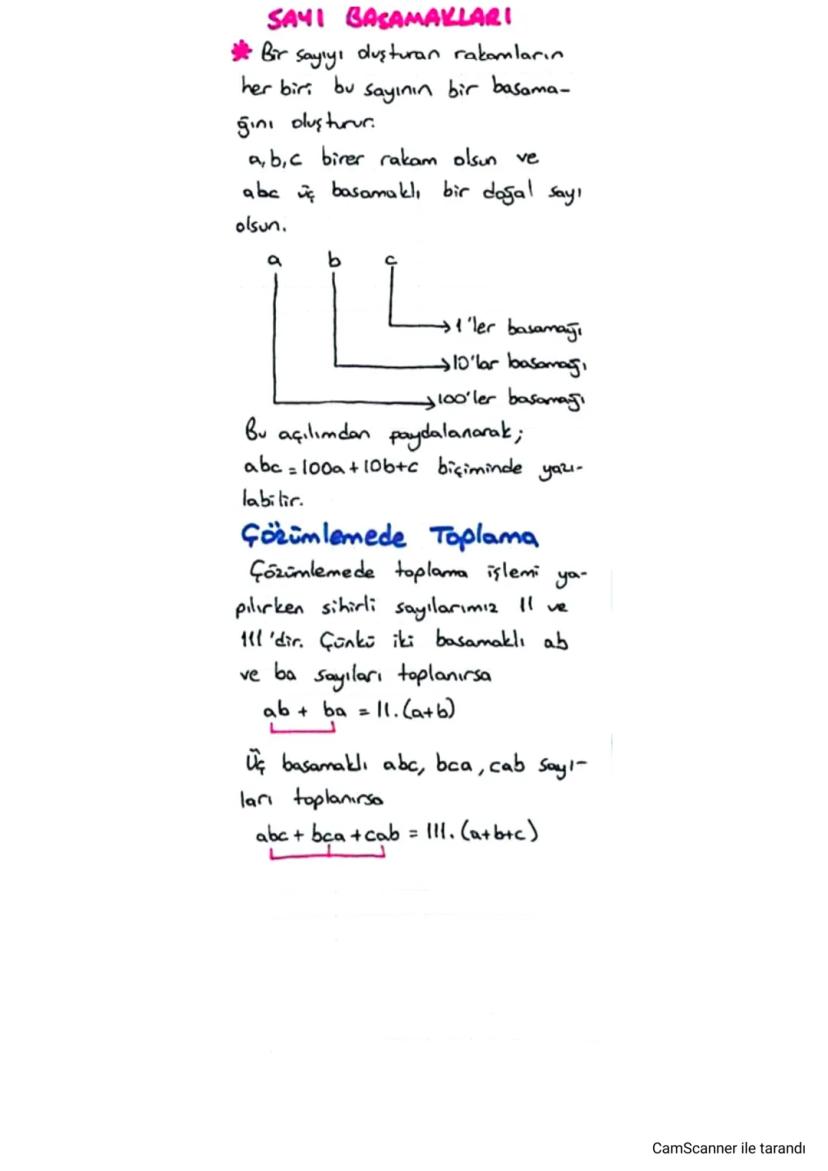 SAYI BASAMAKLARI
* Bir sayıyı oluşturan rakamların
her biri bu sayının bir basama-
ğını oluşturur.
a,b,c birer rakam olsun ve
abc üç basamaklı bir doğal sayı
olsun.
a b c
→1'ler basamağı
→10'lar basamağı
→100'ler basamağı
Bu açılımdan paydalanarak;
abc = 100a + 10b+c biçiminde yazı-
labilir.
Çözümlemede Toplama
Çözümlemede toplama işlemi ya-
pılırken sihirli sayılarımız 11 ve
111'dir. Çünkü iki basamaklı ab
ve ba sayıları toplanırsa
ab + ba = 11.(a+b)
Üç basamaklı abc, bca, cab sayı-
ları toplanırsa
abc + bca + cab = 111.(a+b+c)
CamScanner ile tarandı